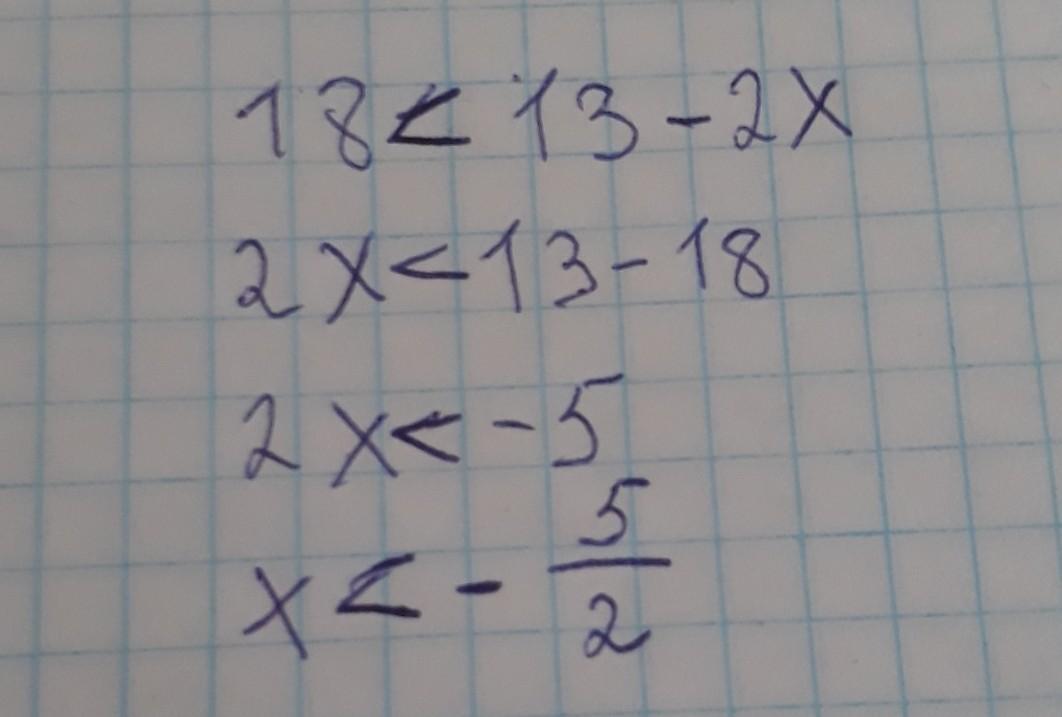 18 < 13 - 2x
2x < 13 - 18
2x < -5
x < - 5/2